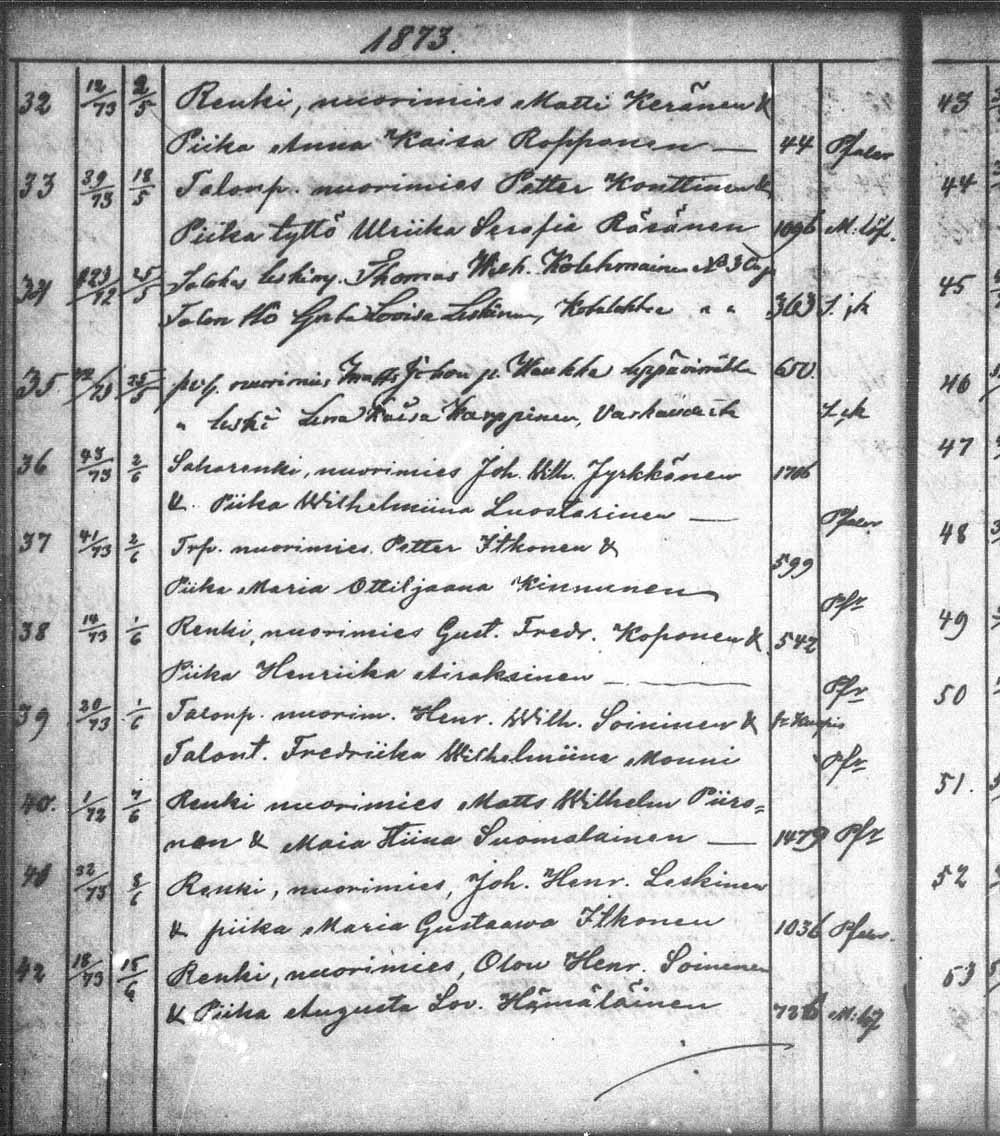 1873.
32 12/73 2/5 Renki, nuorimies Matti Keränen &
Piika Anna Kaisa Ropponen — 44 Pfaler
33 39/73 18/5 Talonp. nuorimies Petter Konttinen &
Piika tyttö Ulriika Serafia Räsänen 1096 M: Löf.
34 25/5 leskimy. Thomas Wilh. Kolehmainen No 3
Talon Lovisa Leskinen, " " 363
35 25/5 nuorimies Johan p. Haukka Leppävirralta 650.
" leski Lena Kaisa Karppinen,
36 43/73 2/6 Saharenki, nuorimies Joh. Wilh. Jyrkkänen 1706
&. Piika Wilhelmiina Luostarinen — Pfaler
37 41/73 2/6 Trp. nuorimies Petter Itkonen &
Piika Maria Ottiljaana Kinnunen 599 Pfr
38 14/73 1/6 Renki, nuorimies Gust. Fredr. Koponen & 542
Piika Henriika Airaksinen — Pfr
39 20/73 1/6 Talonp. nuorim. Henr. Wilh. Soininen &
Talont. Fredriika Wilhelmiina Monni Pfr
40. 1/72 7/6 Renki nuorimies Matts Wilhelm Piiro=
nen & Maia Stiina Suomalainen — 1479 Pfr
41 32/73 8/6 Renki, nuorimies, Joh. Henr. Leskinen
& piika Maria Gustaawa Itkonen 1036
42 18/73 15/6 Renki, nuorimies, Olou Henr. Soininen
& Piika Augusta Lov. Hämäläinen M: Löf
43
44
45
46
47
48
49
50
51.
52
53